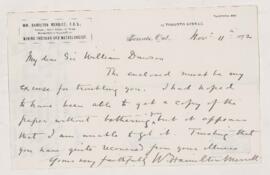 WM. HAMILTON MERRITT, F.G.S.,
MINING ENGINEER AND METALLURGIST.
15 TORONTO STREET,
Toronto, Ont. Nov. 11th 1892
My dear Sir William Dawson
The enclosed must be my
excuse for troubling you. I had hoped
to have been able to get a copy of the
paper without bothering, but it appears
that I am unable to get it. Trusting that
you have quite recovered from your illness
Yours very faithfully W. Hamilton Merritt